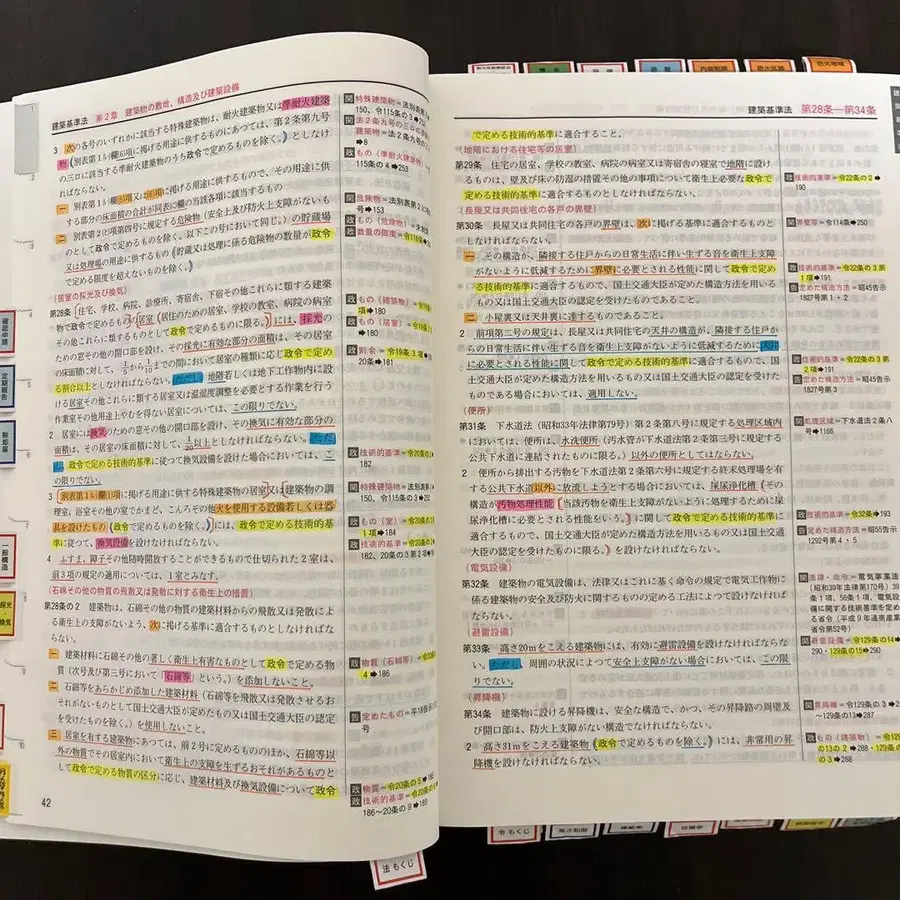 建築基準法 第2章 建築物の敷地、構造及び建築設備
3 次の各号のいずれかに該当する特殊建築物は、耐火建築物又は準耐火建築
物(別表第1(い)欄(6)項に掲げる用途に供するものにあつては、第2条第九号
の三ロに該当する準耐火建築物のうち政令で定めるものを除く。)としなけ
ればならない。
一 別表第1(い)欄(5)項又は(6)項に掲げる用途に供するもので、その用途に供
する部分の床面積の合計が同表(に)欄の当該各項に該当するもの
二 別表第2(と)項第四号に規定する危険物(安全上及び防火上支障がないも
のとして政令で定めるものを除く。以下この号において同じ。)の貯蔵場
又は処理場の用途に供するもの(貯蔵又は処理に係る危険物の数量が政令
で定める限度を超えないものを除く。)
(居室の採光及び換気)
第28条 住宅、学校、病院、診療所、寄宿舎、下宿その他これらに類する建築
物で政令で定めるものの居室(居住のための居室、学校の教室、病院の病室
その他これらに類するものとして政令で定めるものに限る。)には、採光の
ための窓その他の開口部を設け、その採光に有効な部分の面積は、その居室
の床面積に対して、1/5から1/10までの間において居室の種類に応じ政令で定め
る割合以上としなければならない。ただし、地階若しくは地下工作物内に設
ける居室その他これらに類する居室又は温湿度調整を必要とする作業を行う
作業室その他用途上やむを得ない居室については、この限りでない。
2 居室には換気のための窓その他の開口部を設け、その換気に有効な部分の
面積は、その居室の床面積に対して、1/20以上としなければならない。ただ
し、政令で定める技術的基準に従つて換気設備を設けた場合においては、こ
の限りでない。
3 別表第1(い)欄(1)項に掲げる用途に供する特殊建築物の居室又は建築物の調
理室、浴室その他の室でかまど、こんろその他火を使用する設備若しくは器
具を設けたもの(政令で定めるものを除く。)には、政令で定める技術的基
準に従つて、換気設備を設けなければならない。
4 ふすま、障子その他随時開放することができるもので仕切られた2室は、
前3項の規定の適用については、1室とみなす。
(石綿その他の物質の飛散又は発散に対する衛生上の措置)
第28条の2 建築物は、石綿その他の物質の建築材料からの飛散又は発散によ
る衛生上の支障がないよう、次に掲げる基準に適合するものとしなければな
らない。
一 建築材料に石綿その他の著しく衛生上有害なものとして政令で定める物
質(次号及び第三号において「石綿等」という。)を添加しないこと。
二 石綿等をあらかじめ添加した建築材料(石綿等を飛散又は発散させるお
それがないものとして国土交通大臣が定めたもの又は国土交通大臣の認定
を受けたものを除く。)を使用しないこと。
三 居室を有する建築物にあつては、前2号に定めるもののほか、石綿等以
外の物質でその居室内において衛生上の支障を生ずるおそれがあるものと
して政令で定める物質の区分に応じ、建築材料及び換気設備について政令
42
関 特殊建築物=法別表
150、令115条の3➡
関 法2条九号の三ロの
建築物=法2条九号の
➡8
政 もの(準耐火建築物)
115条の4➡253
関 危険物=法別表第2
号➡153
政 もの(危険物)
政 数量の限度=令116条
政 もの(建築物)
項➡180
政 もの(居室)
➡180
政 割合=令19条3項
181
政 技術的基準=令20条の
182
関 特殊建築物=法別表
150、令115条の3➡
政 もの(室)
1項➡184
政 技術的基準
182、20条の3第2項
政 物質(石綿等)
4➡186
告 定めたもの=平18
号
政 物質=令20条の5➡
政 技術的基準=令20条の
186〜20条の9➡189
建築基準法 第28条―第34条
で定める技術的基準に適合すること。
(地階における住宅等の居室)
第29条 住宅の居室、学校の教室、病院の病室又は寄宿舎の寝室で地階に設け
るものは、壁及び床の防湿の措置その他の事項について衛生上必要な政令で
定める技術的基準に適合するものとしなければならない。
(長屋又は共同住宅の各戸の界壁)
第30条 長屋又は共同住宅の各戸の界壁は、次に掲げる基準に適合するものと
しなければならない。
一 その構造が、隣接する住戸からの日常生活に伴い生ずる音を衛生上支障
がないように低減するために界壁に必要とされる性能に関して政令で定め
る技術的基準に適合するもので、国土交通大臣が定めた構造方法を用いるも
の又は国土交通大臣の認定を受けたものであること。
二 小屋裏又は天井裏に達するものであること。
2 前項第二号の規定は、長屋又は共同住宅の天井の構造が、隣接する住戸か
らの日常生活に伴い生ずる音を衛生上支障がないように低減するために天井
に必要とされる性能に関して政令で定める技術的基準に適合するもので、国
土交通大臣が定めた構造方法を用いるもの又は国土交通大臣の認定を受けた
ものである場合においては、適用しない。
(便所)
第31条 下水道法(昭和33年法律第79号)第2条第八号に規定する処理区域内
においては、便所は、水洗便所(汚水管が下水道法第2条第三号に規定する
公共下水道に連結されたものに限る。)以外の便所としてはならない。
2 便所から排出する汚物を下水道法第2条第六号に規定する終末処理場を有
する公共下水道以外に放流しようとする場合においては、屎尿浄化槽(その
構造が汚物処理性能(当該汚物を衛生上支障がないように処理するために屎
尿浄化槽に必要とされる性能をいう。)に関して政令で定める技術的基準に
適合するもので、国土交通大臣が定めた構造方法を用いるもの又は国土交通
大臣の認定を受けたものに限る。)を設けなければならない。
(電気設備)
第32条 建築物の電気設備は、法律又はこれに基く命令の規定で電気工作物に
係る建築物の安全及び防火に関するものの定める工法によつて設けなければ
ならない。
(避雷設備)
第33条 高さ20mをこえる建築物には、有効に避雷設備を設けなければならな
い。ただし、周囲の状況によつて安全上支障がない場合においては、この限
りでない。
(昇降機)
第34条 建築物に設ける昇降機は、安全な構造で、かつ、その昇降路の周壁及
び開口部は、防火上支障がない構造でなければならない。
2 高さ31mをこえる建築物(政令で定めるものを除く。)には、非常用の昇
降機を設けなければならない。
政 技術的基準=令22条の2➡
190
関 界壁等=令114条➡250
政 技術的基準=令22条の3第
1項➡191
告 定めた構造方法=昭45告示
1827号第1・2
政 技術的基準=令22条の3第
2項➡191
告 定めた構造方法=昭45告示
1827号第3
関 処理区域=下水道法2条八
号➡1166
政 技術的基準=令32条➡193
告 定めた構造方法=昭55告示
1292号第4・5
関 法律・命令=電気事業法
(昭和39年法律第170号)39
条1項、56条1項、電気設
備に関する技術基準を定め
る省令(平成9年通商産業
省令第52号)
関 避雷設備=令129条の14➡
290・129条の15➡290
関 昇降機=令129条の3➡
〜129条の13➡287
政 もの(建築物)
の13の2➡288・129条の
の3➡288
確認申請
定期報告
除却届
一般構造
採光
換気
構造
避難
内装制限
防火区画
防火地域
法もくじ
令もくじ
高さ制限
建蔽率
容積率